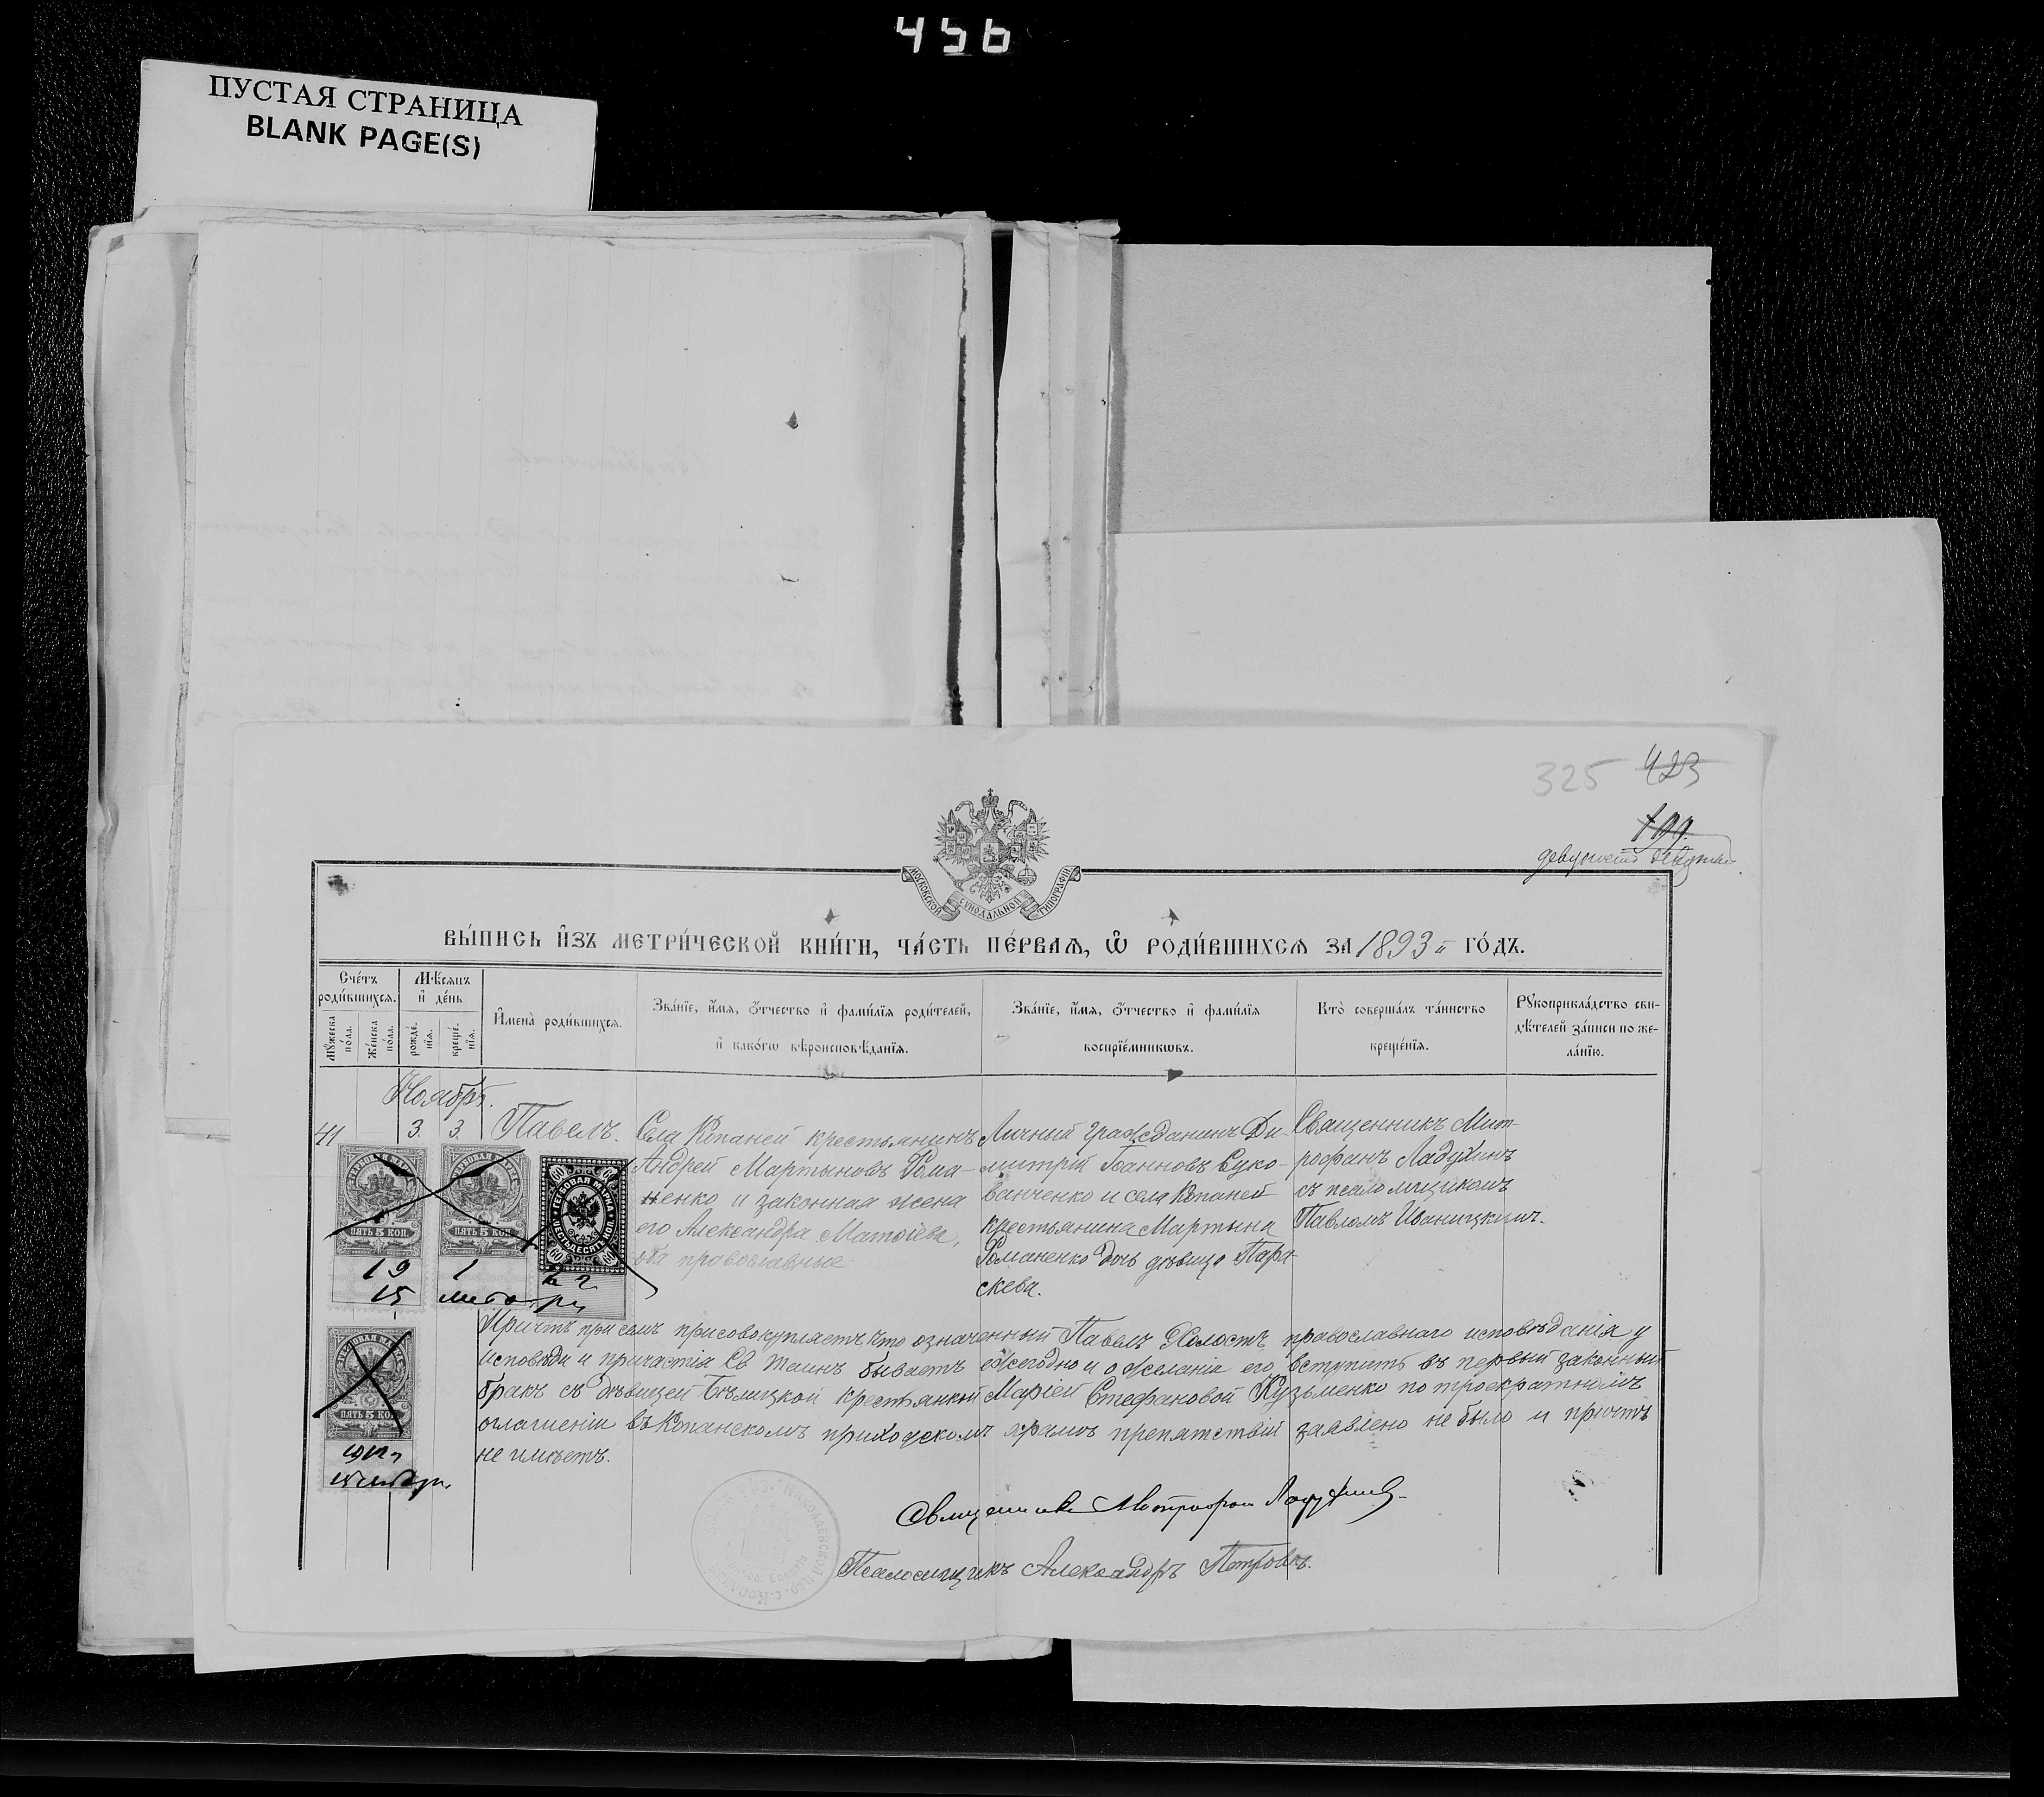 456
ПУСТАЯ СТРАНИЦА
BLANK PAGE(S)
325 423
199
МОСКОВСКОЙ СѴНОДАЛЬНОЙ ТИПОГРАФІИ
ВЫ́ПИСЬ И҆ЗЪ МЕТРИ́ЧЕСКОЙ КНИ́ГИ, ЧА́СТЬ ПЕ́РВАЯ, Ѡ҆ РОДИ́ВШИХСЯ ЗА 1893й ГО́ДЪ.
Сче́тъ роди́вшихся.
Мꙋ́жеска по́ла.
Же́нска по́ла.
Мѣ́сяцъ и҆ де́нь
рожде́нїя.
креще́нїя.
И҆мена̀ роди́вшихся.
Зва́нїе, и҆́мя, ѻ҆́тчество и҆ фами́лїя роди́телей,
и҆ како́гѡ вѣроисповѣ́данїя.
Зва́нїе, и҆́мя, ѻ҆́тчество и҆ фами́лїя
воспрїе́мникѡвъ.
Кто̀ соверша́лъ та́инство
креще́нїя.
Рꙋкоприкла́дство сви-
дѣ́телей за́писи по же-
ла́нїю.
Ноябрь.
41 — 3. 3. Павелъ.
Села Копаней крестьянинъ
Андрей Мартыновъ Рома-
ненко и законная жена
его Александра Матѳіева,
оба православные
Личный гражданинъ Ди-
митрій Іоанновъ Суко-
ванченко и села Копаней
крестьянина Мартына
Романенко дочь дѣвица Пара-
скева.
Священникъ Мит-
рофанъ Ладухинъ
съ псаломщикомъ
Павломъ Иваницкимъ.
ГЕРБОВАЯ МАРКА
ПЯТЬ 5 КОП.
ГЕРБОВАЯ МАРКА
ПЯТЬ 5 КОП.
ГЕРБОВАЯ МАРКА ШЕСТЬДЕСЯТЪ КОП.
60 60 60 60
19 1 2 г
15
ГЕРБОВАЯ МАРКА
ПЯТЬ 5 КОП.
1912
Причтъ при семъ присовокупляетъ, что означенный Павелъ холостъ православнаго исповѣданія у
исповѣди и причастія Св Таинъ бываетъ ежегодно и о желаніи его вступить въ первый законный
бракъ съ дѣвицей Бѣлицкой крестьянкой Маріей Стефановой Кузьменко по троекратномъ
оглашеніи въ Копанскомъ приходскомъ храмѣ препятствій заявлено не было и причтъ
не имѣетъ.
Священникъ Митрофанъ Ладухинъ
Псаломщикъ Александръ Петровъ.